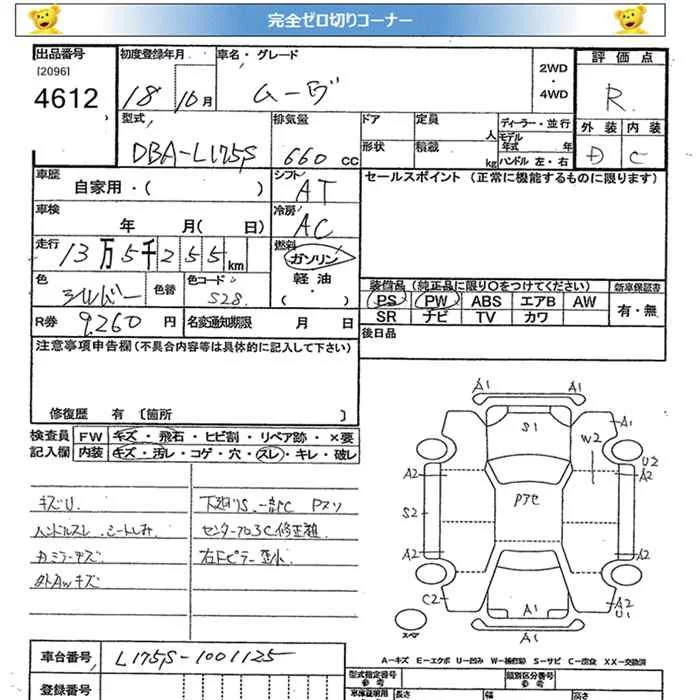 完全ゼロ切りコーナー
出品番号 初度登録年月 車名・グレード 2WD・4WD 評価点
[2096] 4612 18 10月 ムーヴ R
型式 排気量 ドア 定員 人 ディーラー・並行 外装 内装
DBA-L175S 660 CC 形状 積載 kg モデル年式 年 ハンドル 左・右 D C
車歴 自家用・( ) シフト AT セールスポイント (正常に機能するものに限ります)
車検 年 月( 日) 冷房 AC
走行 13万5千255km 燃料 ガソリン
色 シルバー 色替 色コード S28 軽油・( ) 装備品 (純正品に限り○をつけてください) 新車保証書
PS PW ABS エアB AW 有・無
R券 9,260 円 名変通知期限 月 日 SR ナビ TV カワ
注意事項申告欄 (不具合内容等は具体的に記入して下さい) 後日品
修復歴 有 〔箇所 〕
検査員 FW キズ・飛石・ヒビ割・リペア跡・×要
記入欄 内装 キズ・汚レ・コゲ・穴・スレ・キレ・破レ
キズU
ハンドルスレ シートしみ
カミラーキズ
外AWキズ
A1
S1
A1
W2
U2
A2 A1
S2
A2 A2
C2 A2
U1
A1
A1
スペア
車台番号 L175S-1001125
A-キズ E-エクボ U-凹み W-補修跡 S-サビ C-腐食 XX-交換済
登録番号 型式指定番号 参考 類別区分番号 参考
車庫証明用 長さ 幅 高さ